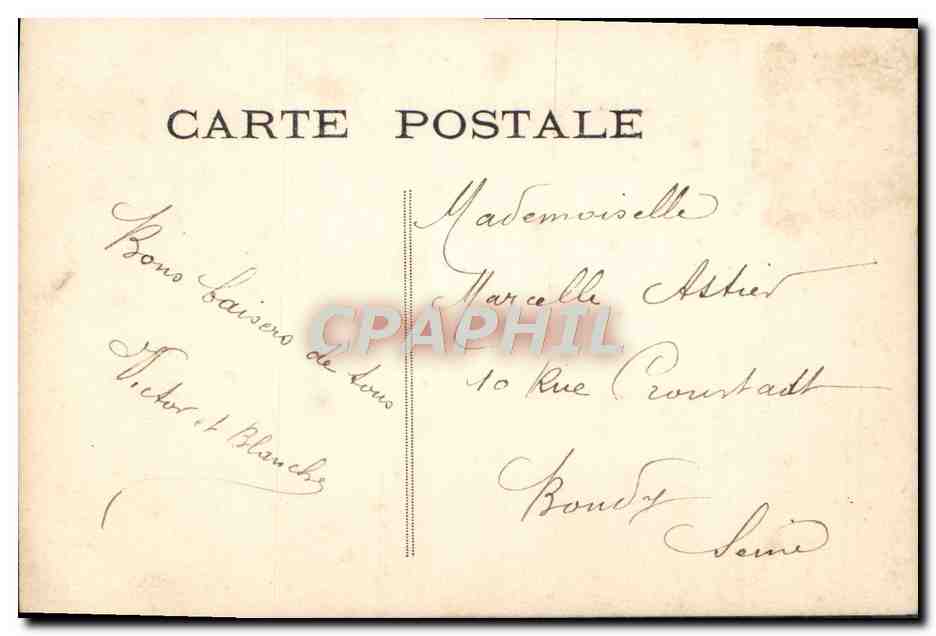 CARTE POSTALE
Bons baisers de tous
Victor et Blanche
Mademoiselle
Marcelle Astier
10 Rue Cronstadt
Bondy
Seine
CPAPHIL